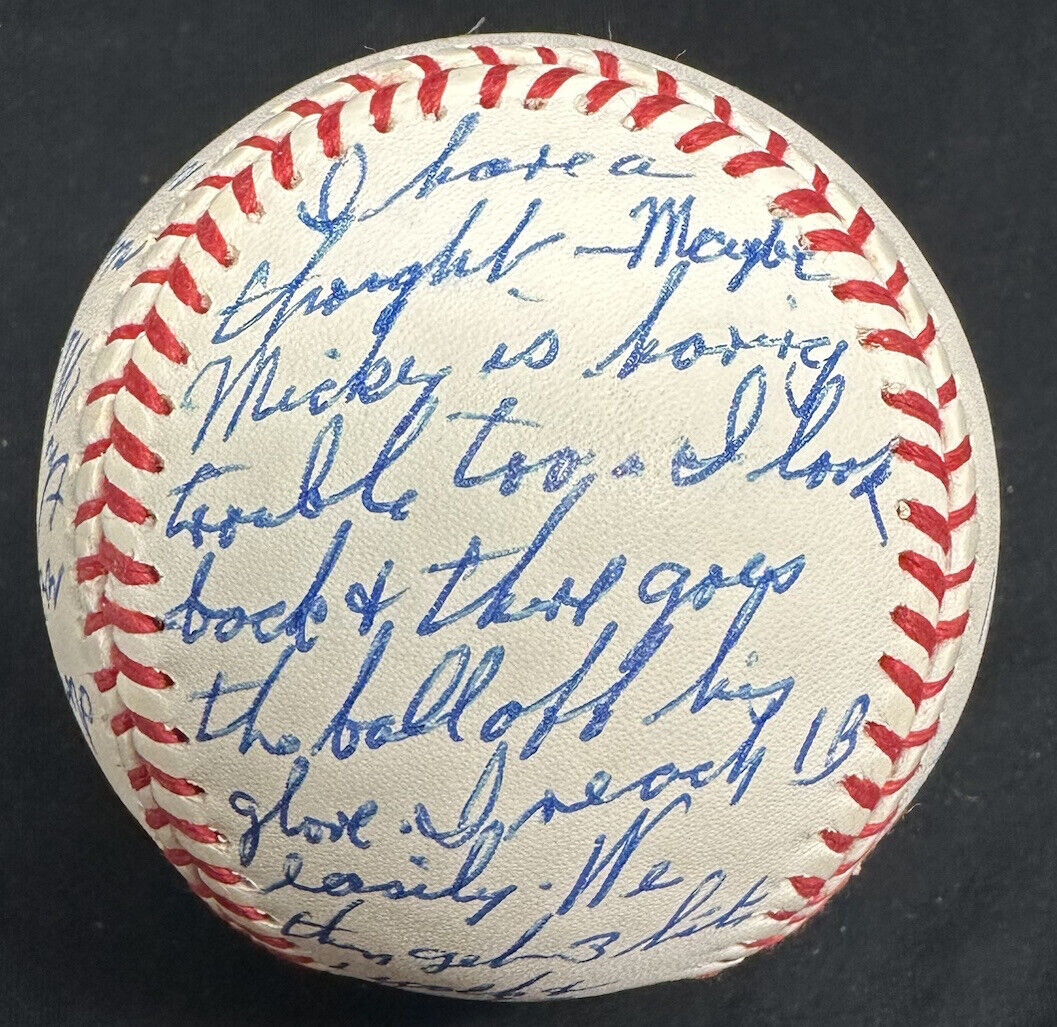 I have a
thought - Maybe
Mickey is having
trouble too. I look
back & there goes
the ball off his
glove. I reach 1B
easily. We
then get 3 hits